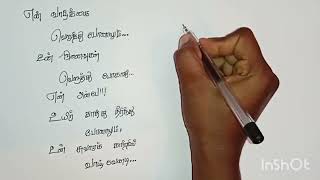 என் வாழ்க்கை
வெறுத்து போனாலும்...
உன் நினைவுகள்
வெறுத்து போகாது...
என் அன்பே!!!
உயிர் காற்று தீர்ந்து
போனாலும்,
உன் சுவாசம் காற்றில்
வாழ வேண்டு...
InShOt